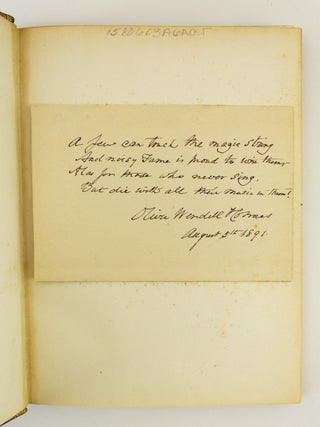 A few can touch the magic string
And noisy Fame is proud to win them
Alas for those who never sing.
But die with all their music in them!
Oliver Wendell Holmes
August 5th 1891.